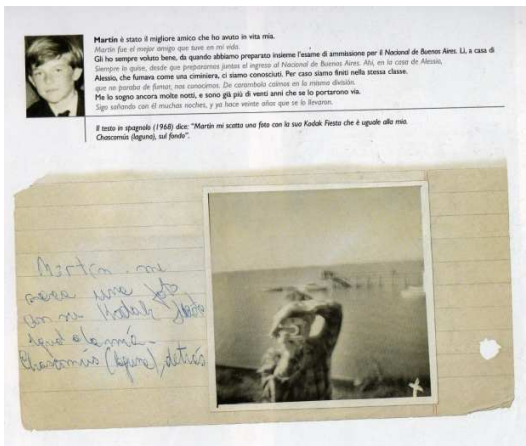 Martín è stato il migliore amico che ho avuto in vita mia.
Martín fue el mejor amigo que tuve en mi vida.
Gli ho sempre voluto bene, da quando abbiamo preparato insieme l'esame di ammissione per il Nacional de Buenos Aires. Lì, a casa di
Siempre lo quise, desde que preparamos juntos el ingreso al Nacional de Buenos Aires. Ahí, en la casa de Alessio,
Alessio, che fumava come una ciminiera, ci siamo conosciuti. Per caso siamo finiti nella stessa classe.
que no paraba de fumar, nos conocimos. De carambola caímos en la misma división.
Me lo sogno ancora molte notti, e sono già più di venti anni che se lo portarono via.
Sigo soñando con él muchas noches, y ya hace veinte años que se lo llevaron.
Il testo in spagnolo (1968) dice: "Martín mi scatta una foto con la sua Kodak Fiesta che è uguale alla mia.
Chascomús (laguna), sul fondo".
Martín me
saca una foto
con su Kodak Fiesta
igual a la mía -
Chascomús (laguna), detrás